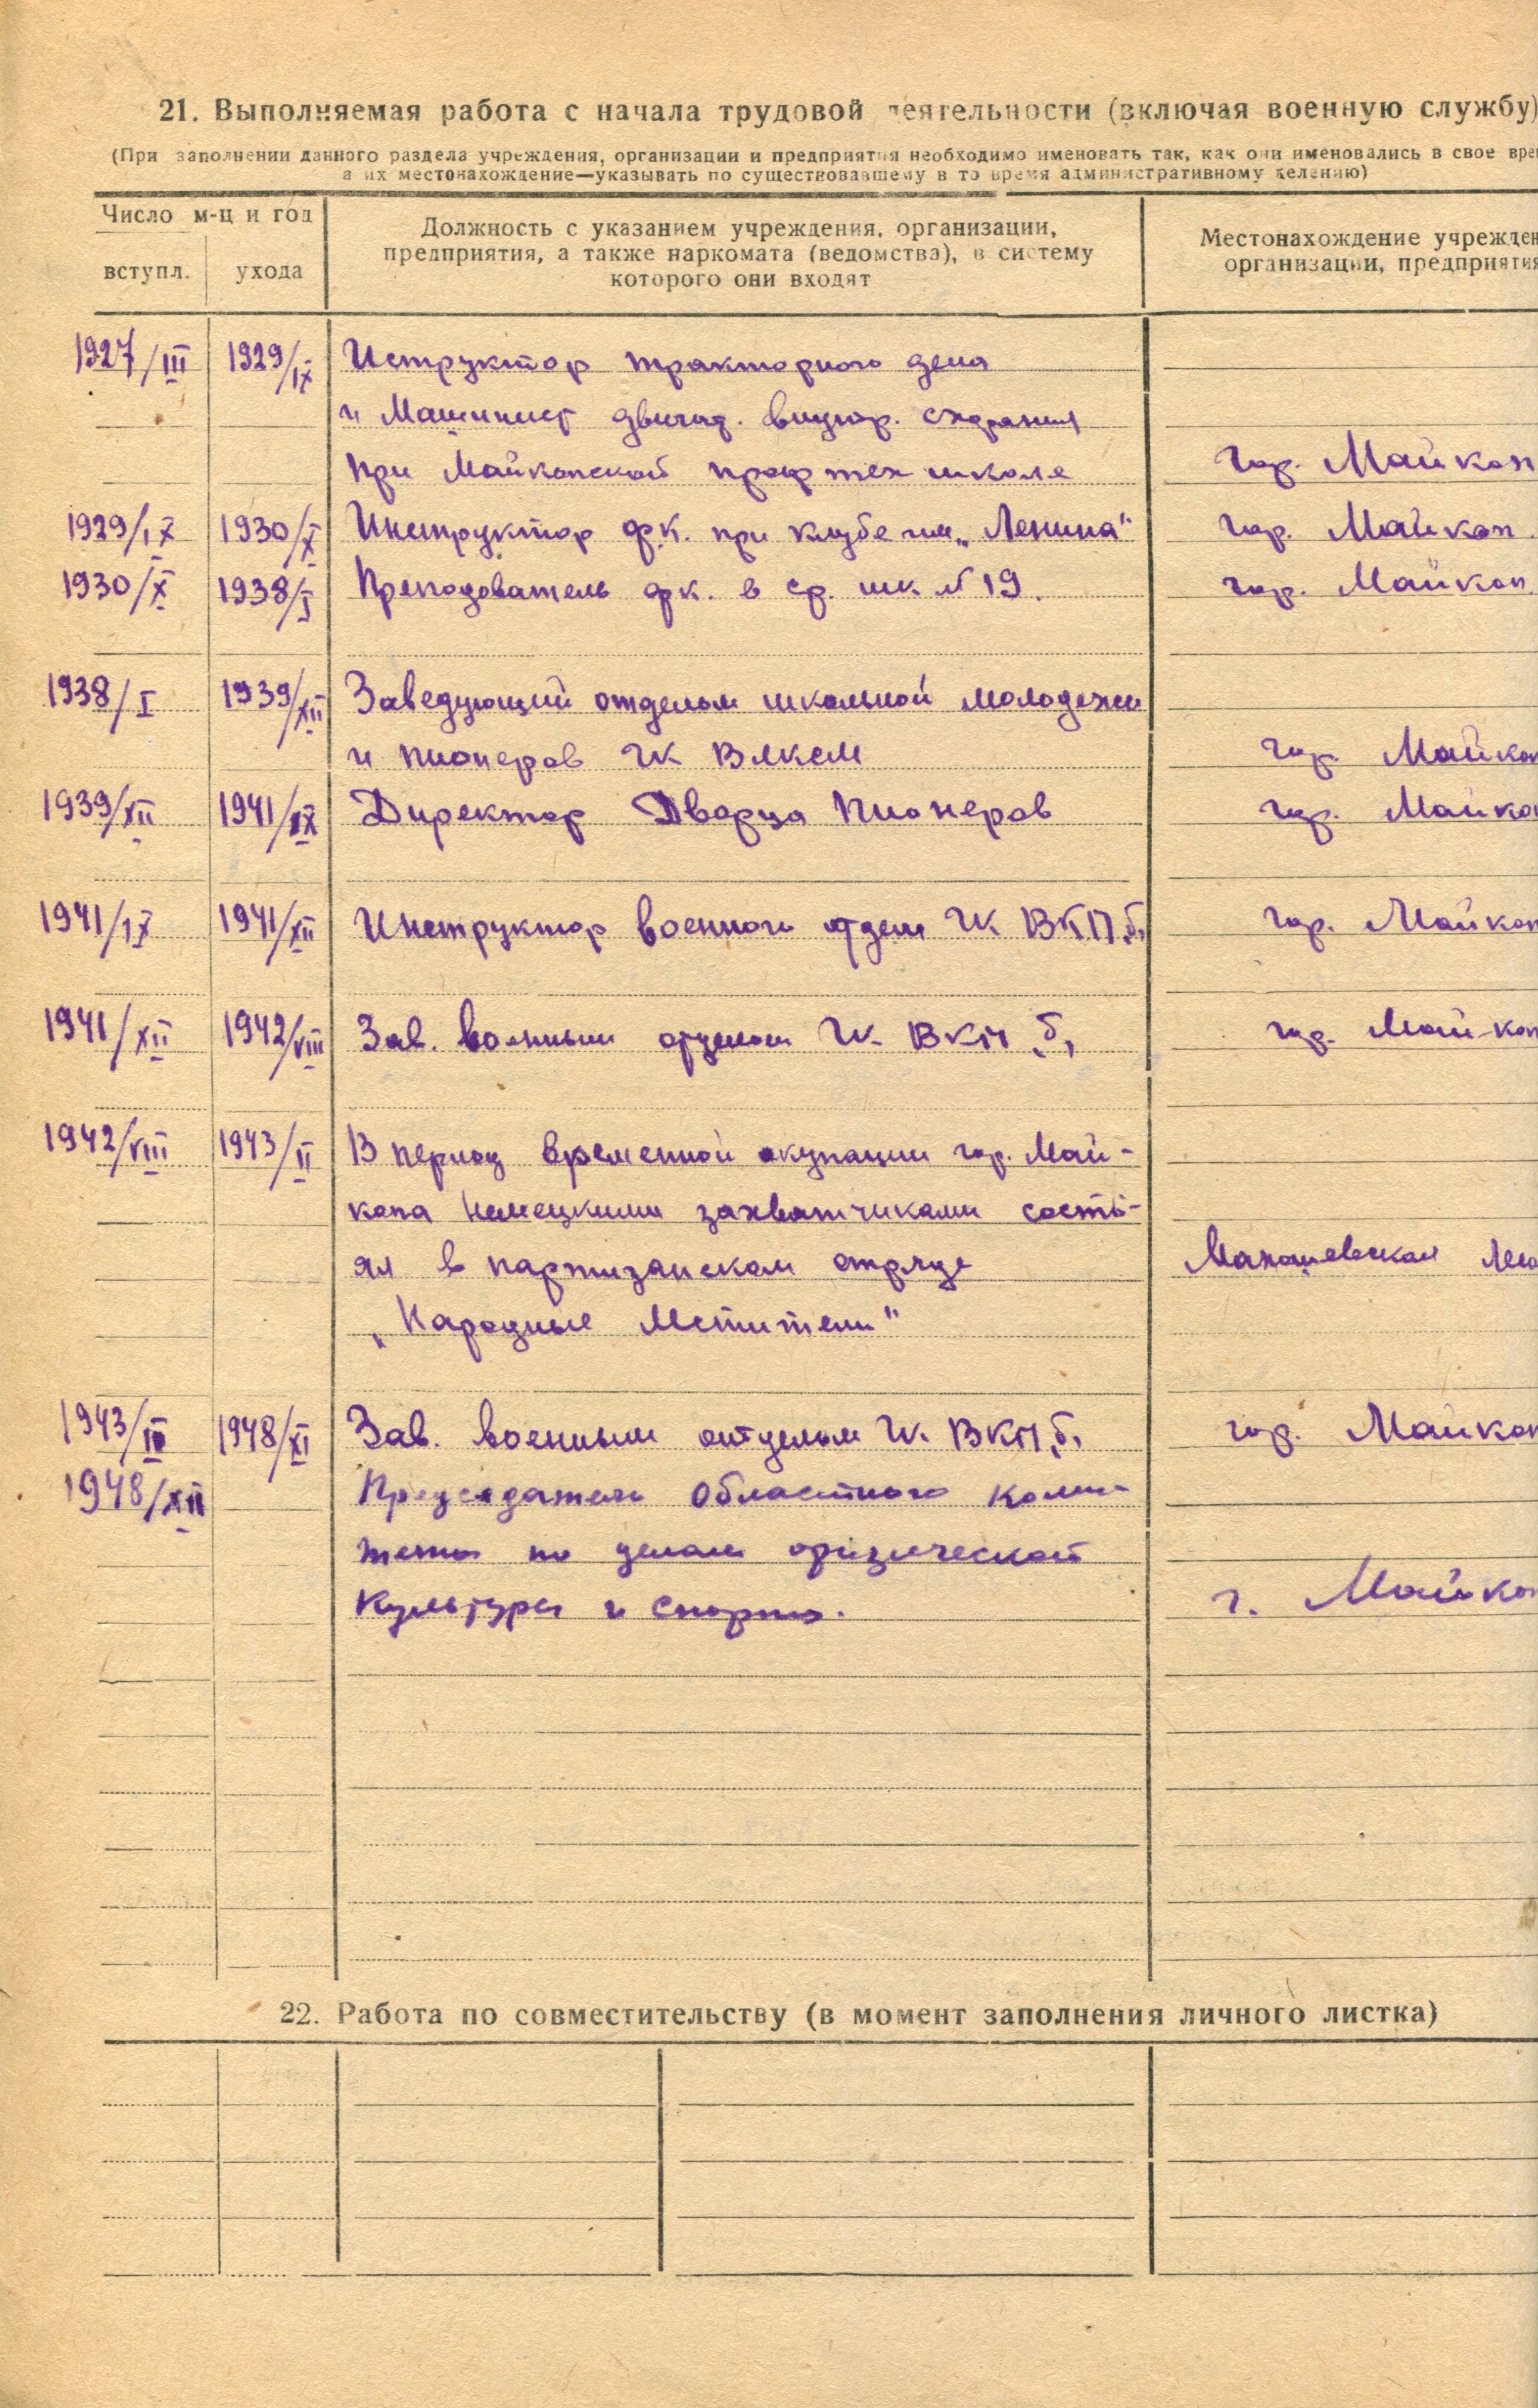 21. Выполняемая работа с начала трудовой деятельности (включая военную службу)
(При заполнении данного раздела учреждения, организации и предприятия необходимо именовать так, как они именовались в свое вре
а их местонахождение—указывать по существовавшему в то время административному делению)
Число м-ц и год
вступл. ухода
Должность с указанием учреждения, организации,
предприятия, а также наркомата (ведомства), в систему
которого они входят
Местонахождение учрежден
организации, предприятия
1927/III 1929/IX Иструктор тракторного дела
и Машинист двигат. внутр. сгорания
при Майкопской проф тех школе гор. Майкоп
1929/IX 1930/X Инструктор ф.к. при клубе им „Ленина" гор. Майкоп.
1930/X 1938/I Преподователь ф к. в ср. шк. № 19. гор. Майкоп.
1938/I 1939/XII Заведующий отделом школьной молодежи
и пионеров ГК ВЛКСМ гор. Майкоп
1939/XII 1941/IX Директор Дворца Пионеров гор. Майкоп
1941/IX 1941/XII Инструктор военного отдела ГК. ВКП.б. гор. Майкоп
1941/XII 1942/VIII Зав. военным отделом ГК. ВКП.б. гор. Майкоп
1942/VIII 1943/II В период временной окупации гор. Май-
копа немецкими захватчиками состо-
ял в партизанском отряде Махошевская
„Народные Мстители"
1943/II 1948/XI Зав. военным отделом ГК. ВКП.б. гор. Майкоп
1948/XII Председатель Областного коми-
тета по делам физической
культуры и спорта. г. Майкоп
22. Работа по совместительству (в момент заполнения личного листка)